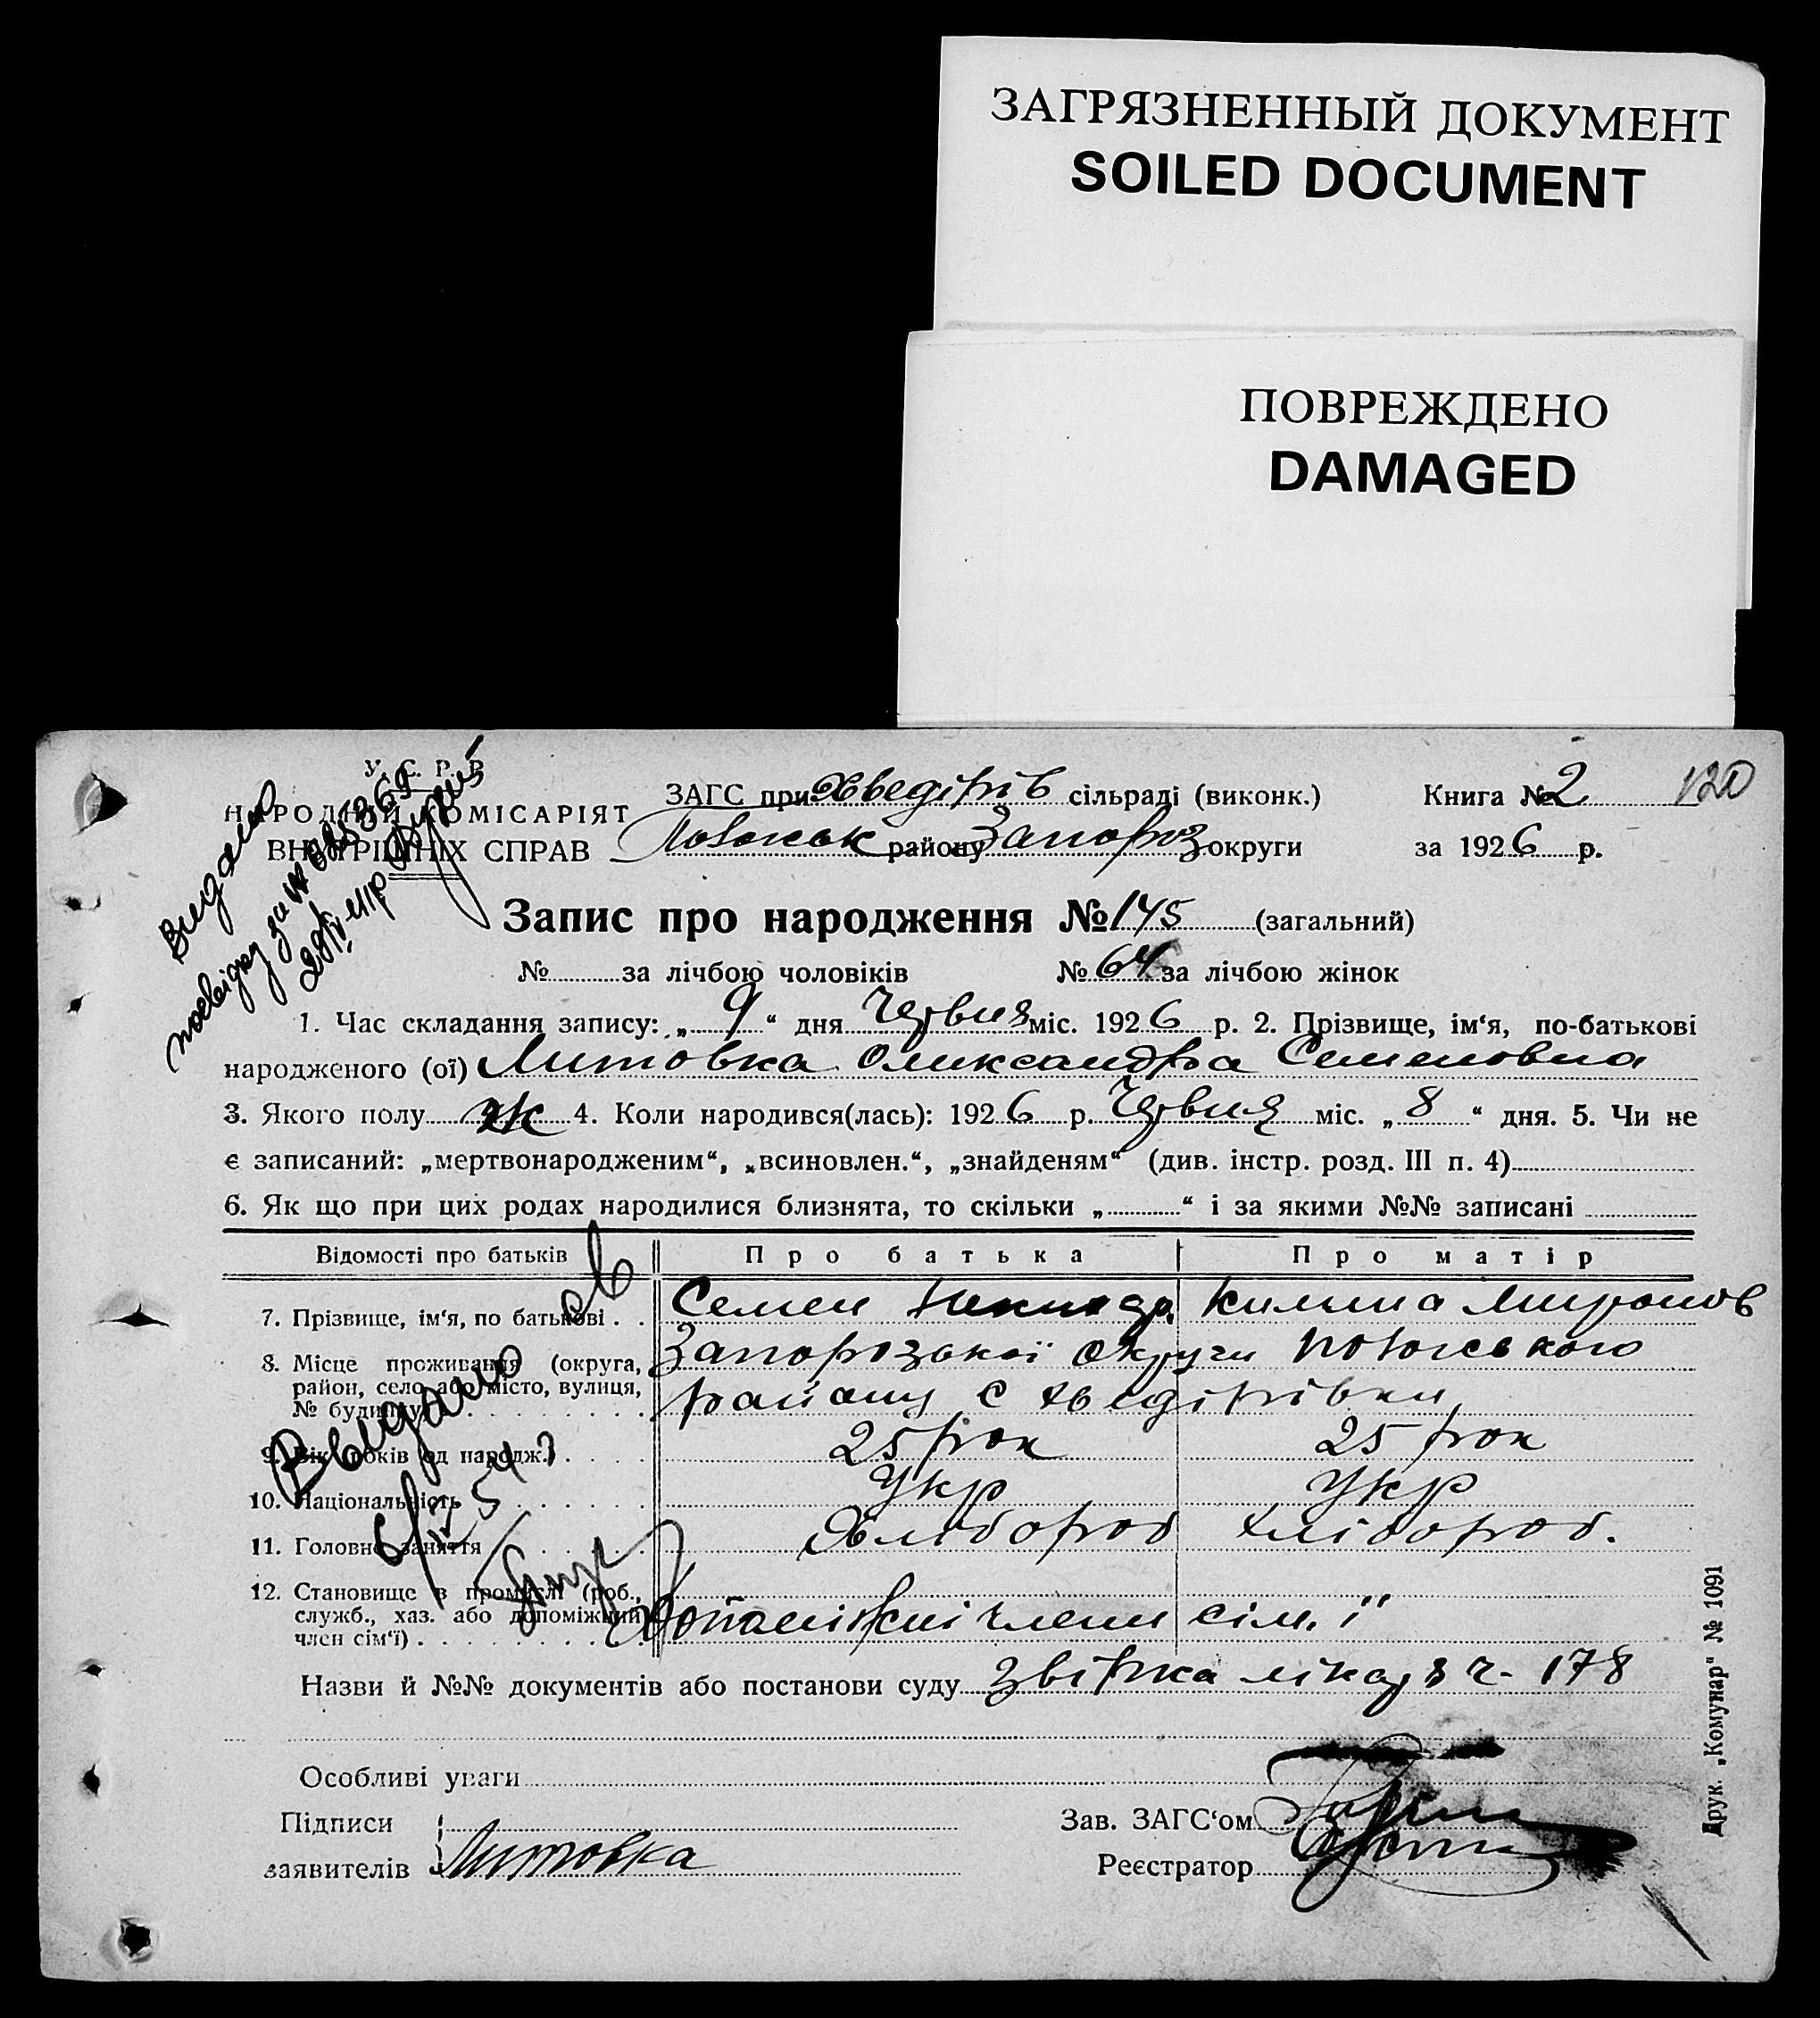 ЗАГРЯЗНЕННЫЙ ДОКУМЕНТ
SOILED DOCUMENT
ПОВРЕЖДЕНО
DAMAGED
У. С. Р. Р.
НАРОДНІЙ КОМІСАРІЯТ
ВНУТРІШНІХ СПРАВ
Видано
посвідку за №
ЗАГС при Хведірів сільраді (виконк.) Книга № 2 120
району Запороз округи за 1926 р.
Запис про народження № 145 (загальний)
№ за лічбою чоловіків № 64 за лічбою жінок
1. Час складання запису: „ 9 “ дня Червня міс. 1926 р. 2. Прізвище, ім‘я, по-батькові
народженого (ої) Литовка Олександра Семеновна
3. Якого полу ж 4. Коли народився(лась): 1926 р. Червня міс. „ 8 “ дня. 5. Чи не
є записаний: „мертвонародженим“, „всиновлен.“, „знайденям“ (див. інстр. розд. III п. 4)
6. Як що при цих родах народилися близнята, то скільки „ “ і за якими №№ записані
Відомості про батьків Про батька Про матір
7. Прізвище, ім‘я, по батькові . . Семен Килина Миронов
8. Місце проживання (округа, Запорозької Округи
район, село або місто, вулиця, району с Хведірівки
№ будинку)
9. Вік (років од народж.) 25 рок 25 рок
10. Національність Укр Укр
11. Головне заняття Хлібороб хлібороб.
12. Становище в промислі (роб.,
служб., хаз. або допоміжний Допоміжні члени сім'ї
член сім‘ї)
Видано
6/IV 54
Назви й №№ документів або постанови суду ч- 178
Особливі уваги
Підписи
заявителів Литовка
Зав. ЗАГС‘ом
Реєстратор
Друк. „Комунар“ № 1091